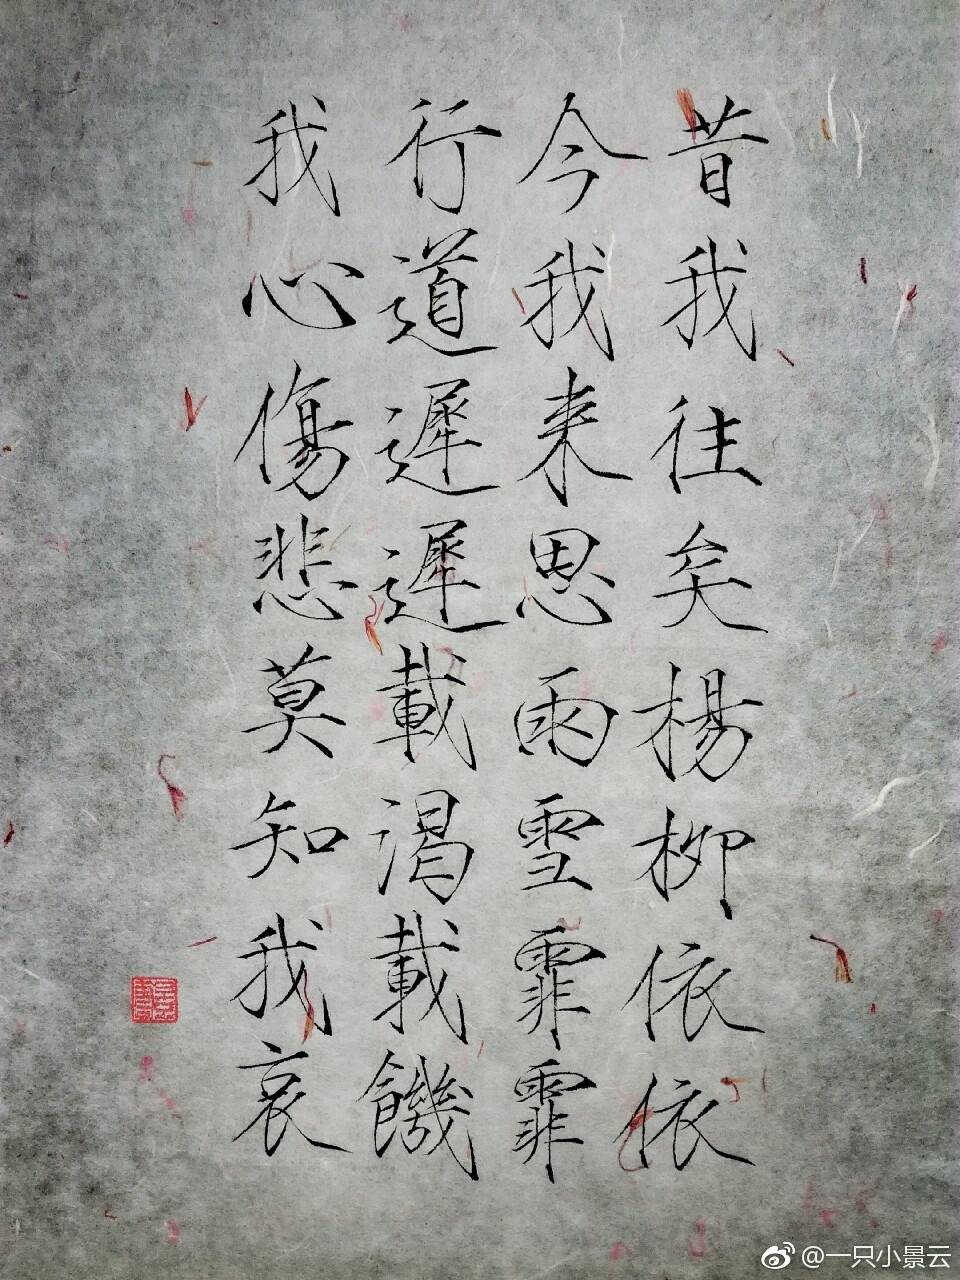 昔我往矣楊柳依依
今我来思雨雪霏霏
行道遲遲載渴載饑
我心傷悲莫知我哀
@一只小景云